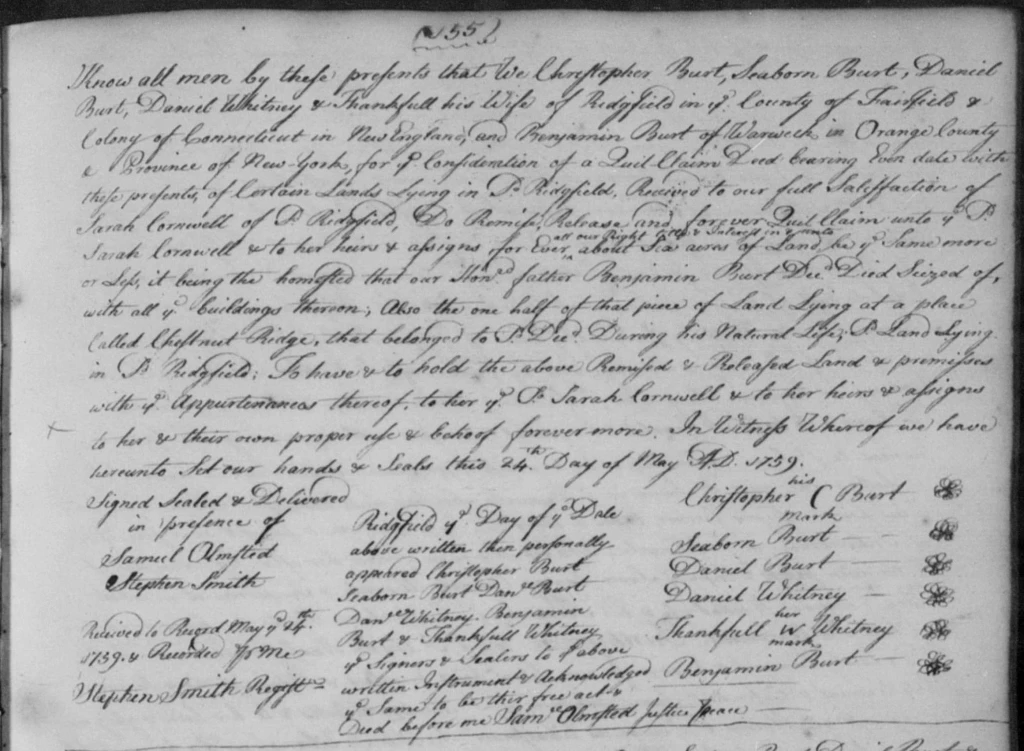 (155)
Know all men by these presents that We Christopher Burt, Seaborn Burt, Daniel
Burt, Daniel Whitney & Thankfull his Wife of Ridgfield in ye. County of Fairfield &
Colony of Connecticut in New England, and Benjamin Burt of Warweck in Orange County
& Province of New-York, for ye Consideration of a Quit Claim Deed bearing Even date with
these presents, of Certain Lands Lying in Sd. Ridgfield, Received to our full Satisfaction of
Sarah Cornwell of Sd. Ridgfield, Do Remise, Release and forever Quit Claim unto ye Sd.
all our Right Title & Interest in & unto
Sarah Cornwell & to her heirs & assigns for Ever ^ about Six acres of Land, be ye Same more
or Less, it being the homested that our Hond. father Benjamin Burt Decd. Died Seized of,
with all ye. buildings thereon; Also the one half of that piece of Land Lying at a place
Called Chestnut Ridge, that belonged to Sd. Decd. During his Natural Life; Sd. Land Lying
in Sd. Ridgfield; To have & to hold the above Remised & Released Land & premisses
with ye. Appurtenances thereof, to her ye. Sd. Sarah Cornwell & to her heirs & assigns
to her & their own proper use & behoof forevermore. In Witness Whereof we have
hereunto Set our hands & Seals this 24th. Day of May A.D. 1759.
Signed Sealed & Delivered
in presence of
Samuel Olmsted
Stephen Smith
Received to Record May ye 24th.
1759. & Recorded Pr Me
Stephen Smith Registr
Ridgfield ye. Day of ye Date
above written then personally
appeared Christopher Burt
Seaborn Burt Danel Burt
Danel Whitney Benjamin
Burt & Thankfull Whitney
ye Signers & Sealers to ye above
written Instrument & Acknowledged
ye Same to be thir free act &
Died before me Samel Olmsted Justice Peace
his
Christopher C Burt
mark
Seaborn Burt
Daniel Burt
Daniel Whitney
her
Thankfull W Whitney
mark
Benjamin Burt